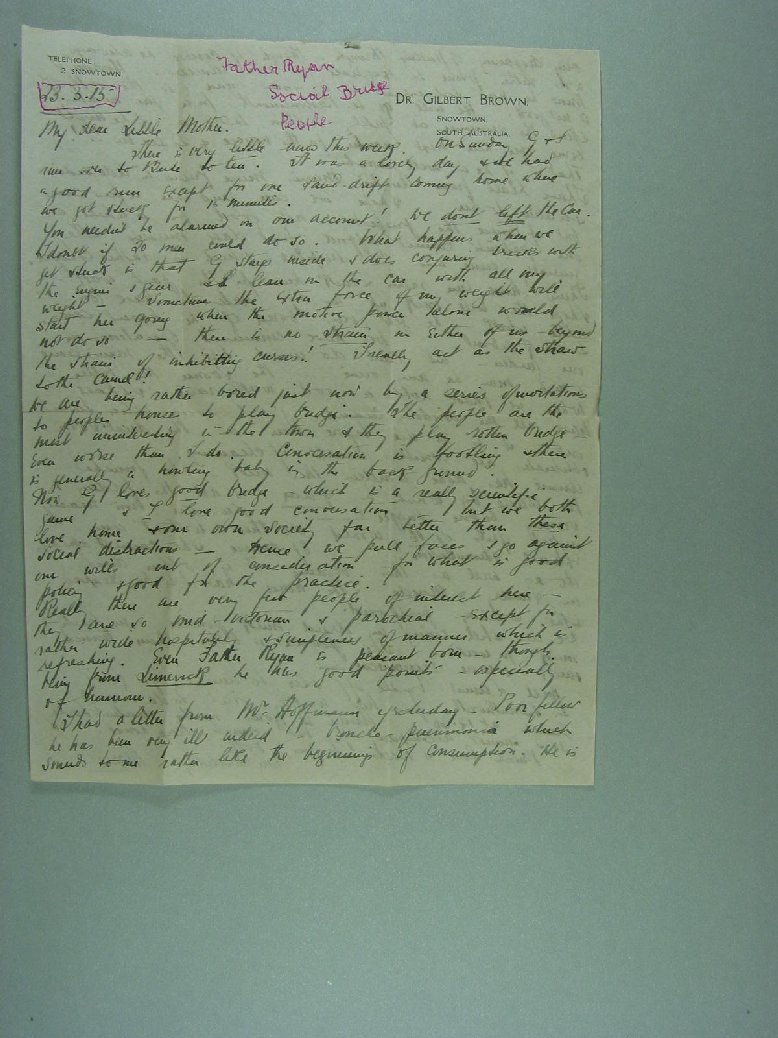 TELEPHONE
2 SNOWTOWN
Father Ryan
Social Bridge
People
23.3.15
DR. GILBERT BROWN.
SNOWTOWN,
SOUTH AUSTRALIA
My dear Little Mother.
There is very little news this week. On Sunday G & I
run over to to tea. It was a lovely day & we had
a good run except for one sand-drift coming home where
we got stuck for 15 minutes.
You needn't be alarmed on our account! We dont left the car.
I doubt if 20 men could do so. What happens when we
get stuck is that G stays inside & does conjuring tricks with
the engine & gear & I lean on the car with all my
weight - Sometimes the extra force of my weight will
start her going when the motive power alone would
not do so - there is no strain on either of us beyond
the strain of inhibiting curses! I really act as the straw
to the camel!
We are being rather bored just now by a series of invitations
to peoples houses to play bridge. The people are the
most uninteresting in the town & they play rotten bridge
even worse than I do. Conversation is footling & there
is generally a howling baby in the back ground.
Now G loves good bridge - which is a really scientific
game & I love good conversation - but we both
love home & our own society far better than these
social distractions - Hence we pull faces & go against
our wills out of consideration for what is good
policy & good for the practice.
Really there are very few people of interest here -
they are so mid-Victorian & parochial - except for
rather wide hospitality & simpleness of manner which is
refreshing. Even Father Ryan is peasant born - though
being from Limerick he has good points - especially
of humour.
I had a letter from Mr. Hoffmann yesterday - Poor fellow
he has been very ill indeed - broncho-pneumonia which
sounds to me rather like the beginnings of consumption. He is